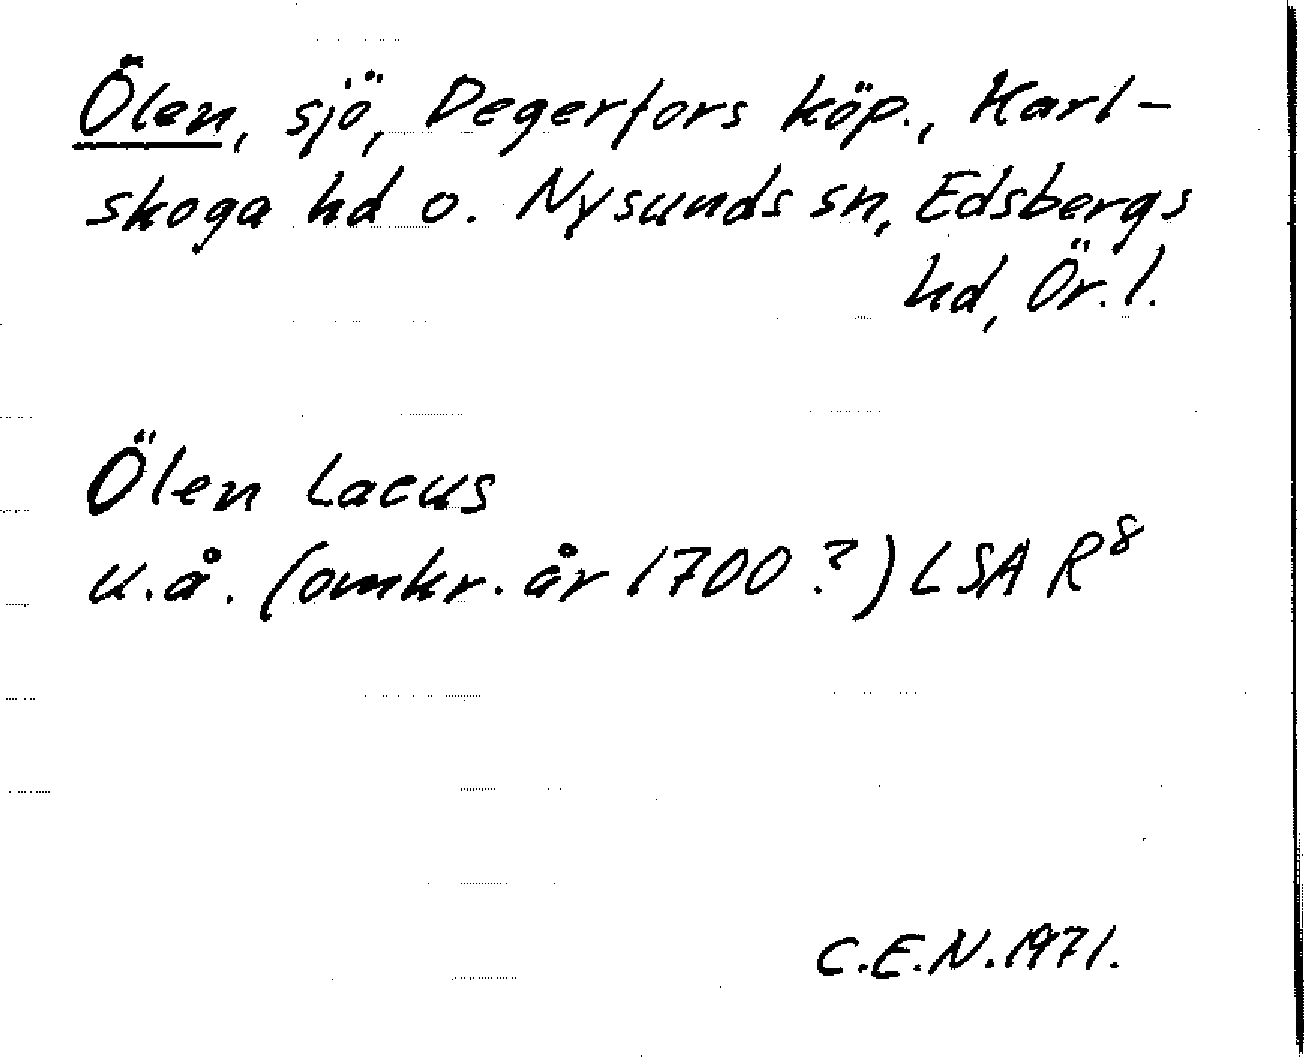 Ölen, sjö, Degerfors köp., Karl-
skoga hd o. Nysunds sn, Edsbergs
hd, Ör.l.
Ölen Lacus
u.å. (omkr. år 1700?) LSA R⁸
C.E.N. 1971.